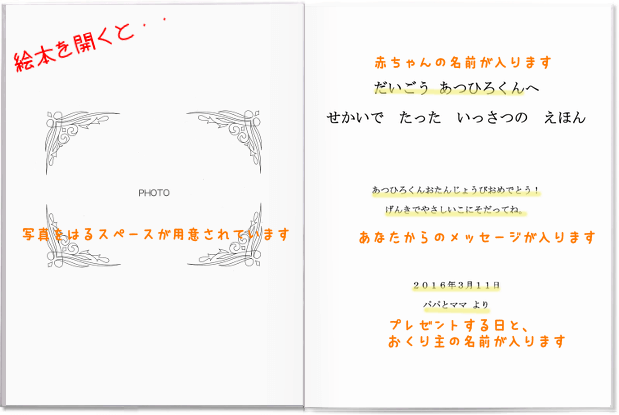 絵本を開くと・・
PHOTO
写真をはるスペースが用意されています
赤ちゃんの名前が入ります
だいごう あつひろくんへ
せかいで たった いっさつの えほん
あつひろくんおたんじょうびおめでとう！
げんきでやさしいこにそだってね。
あなたからのメッセージが入ります
２０１６年３月１１日
パパとママ より
プレゼントする日と、
おくり主の名前が入ります